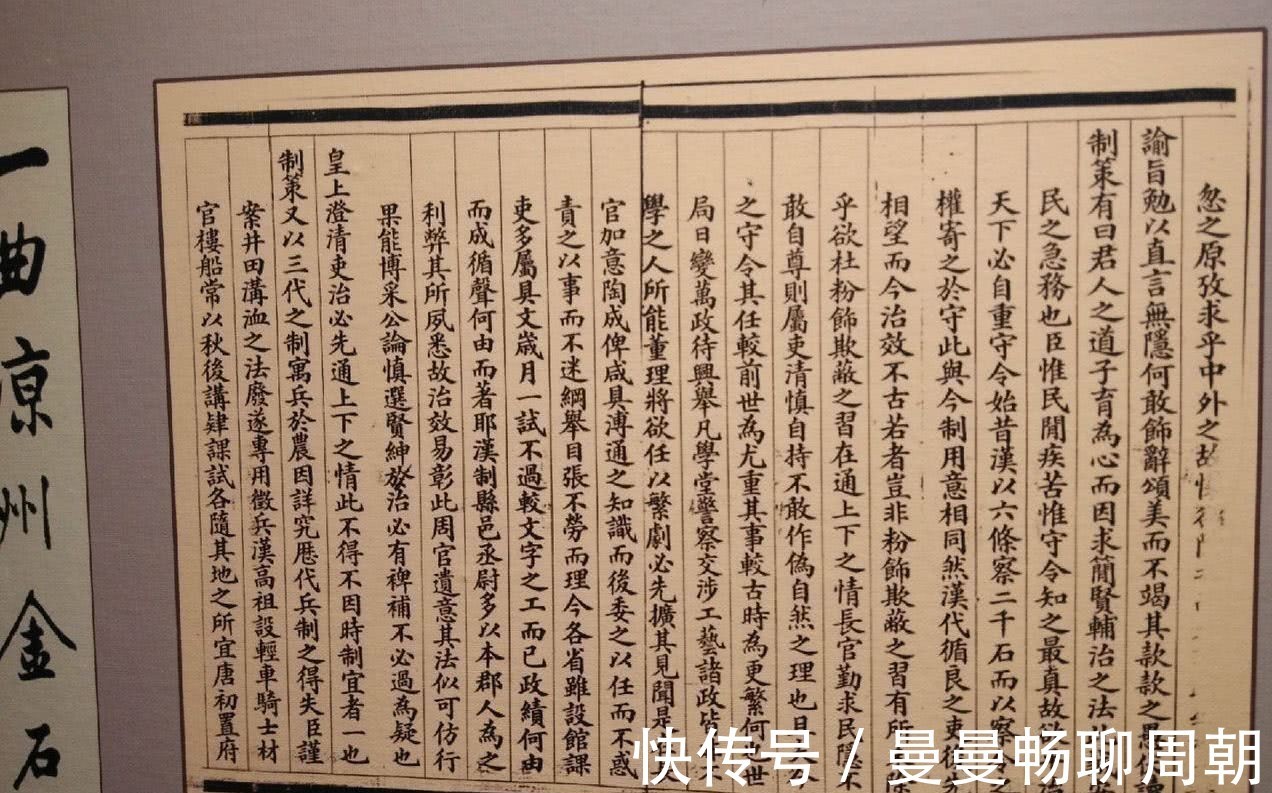 忽之原攷求乎中外之故
諭旨勉以直言無隱何敢飾辭頌美而不竭其款款之愚伏讀
制策有曰君人之道子育為心而因求簡賢輔治之法
民之急務也臣惟民間疾苦惟守令知之最真故
天下必自重守令始昔漢以六條察二千石而以察令之
權寄之於守此與今制用意相同然漢代循良之吏後先
相望而今治效不古若者豈非粉飾欺蔽之習有所
乎欲杜粉飾欺蔽之習在通上下之情長官勤求民隱不
敢自尊則屬吏清慎自持不敢作偽自然之理也且
之守令其任較前世為尤重其事較古時為更繁何世
局日變萬政待興舉凡學堂警察交涉工藝諸政皆
學之人所能董理將欲任以繁劇必先擴其見聞是
官加意陶成俾咸具溥通之知識而後委之以任而不惑
責之以事而不迷綱舉目張不勞而理今各省雖設館課
吏多屬具文歲月一試不過較文字之工而已政績何由
而成循聲何由而著耶漢制縣邑丞尉多以本郡人為之
利弊其所夙悉故治效易彰此周官遺意其法似可仿行
果能博采公論慎選賢紳於治必有裨補不必過為疑也
皇上澄清吏治必先通上下之情此不得不因時制宜者一也
制策又以三代之制寓兵於農因詳究歷代兵制之得失臣謹
案井田溝洫之法廢遂專用徵兵漢高祖設輕車騎士材
官樓船常以秋後講肄課試各隨其地之所宜唐初置府
一曲凉州金石
快传号 / 曼曼畅聊周朝